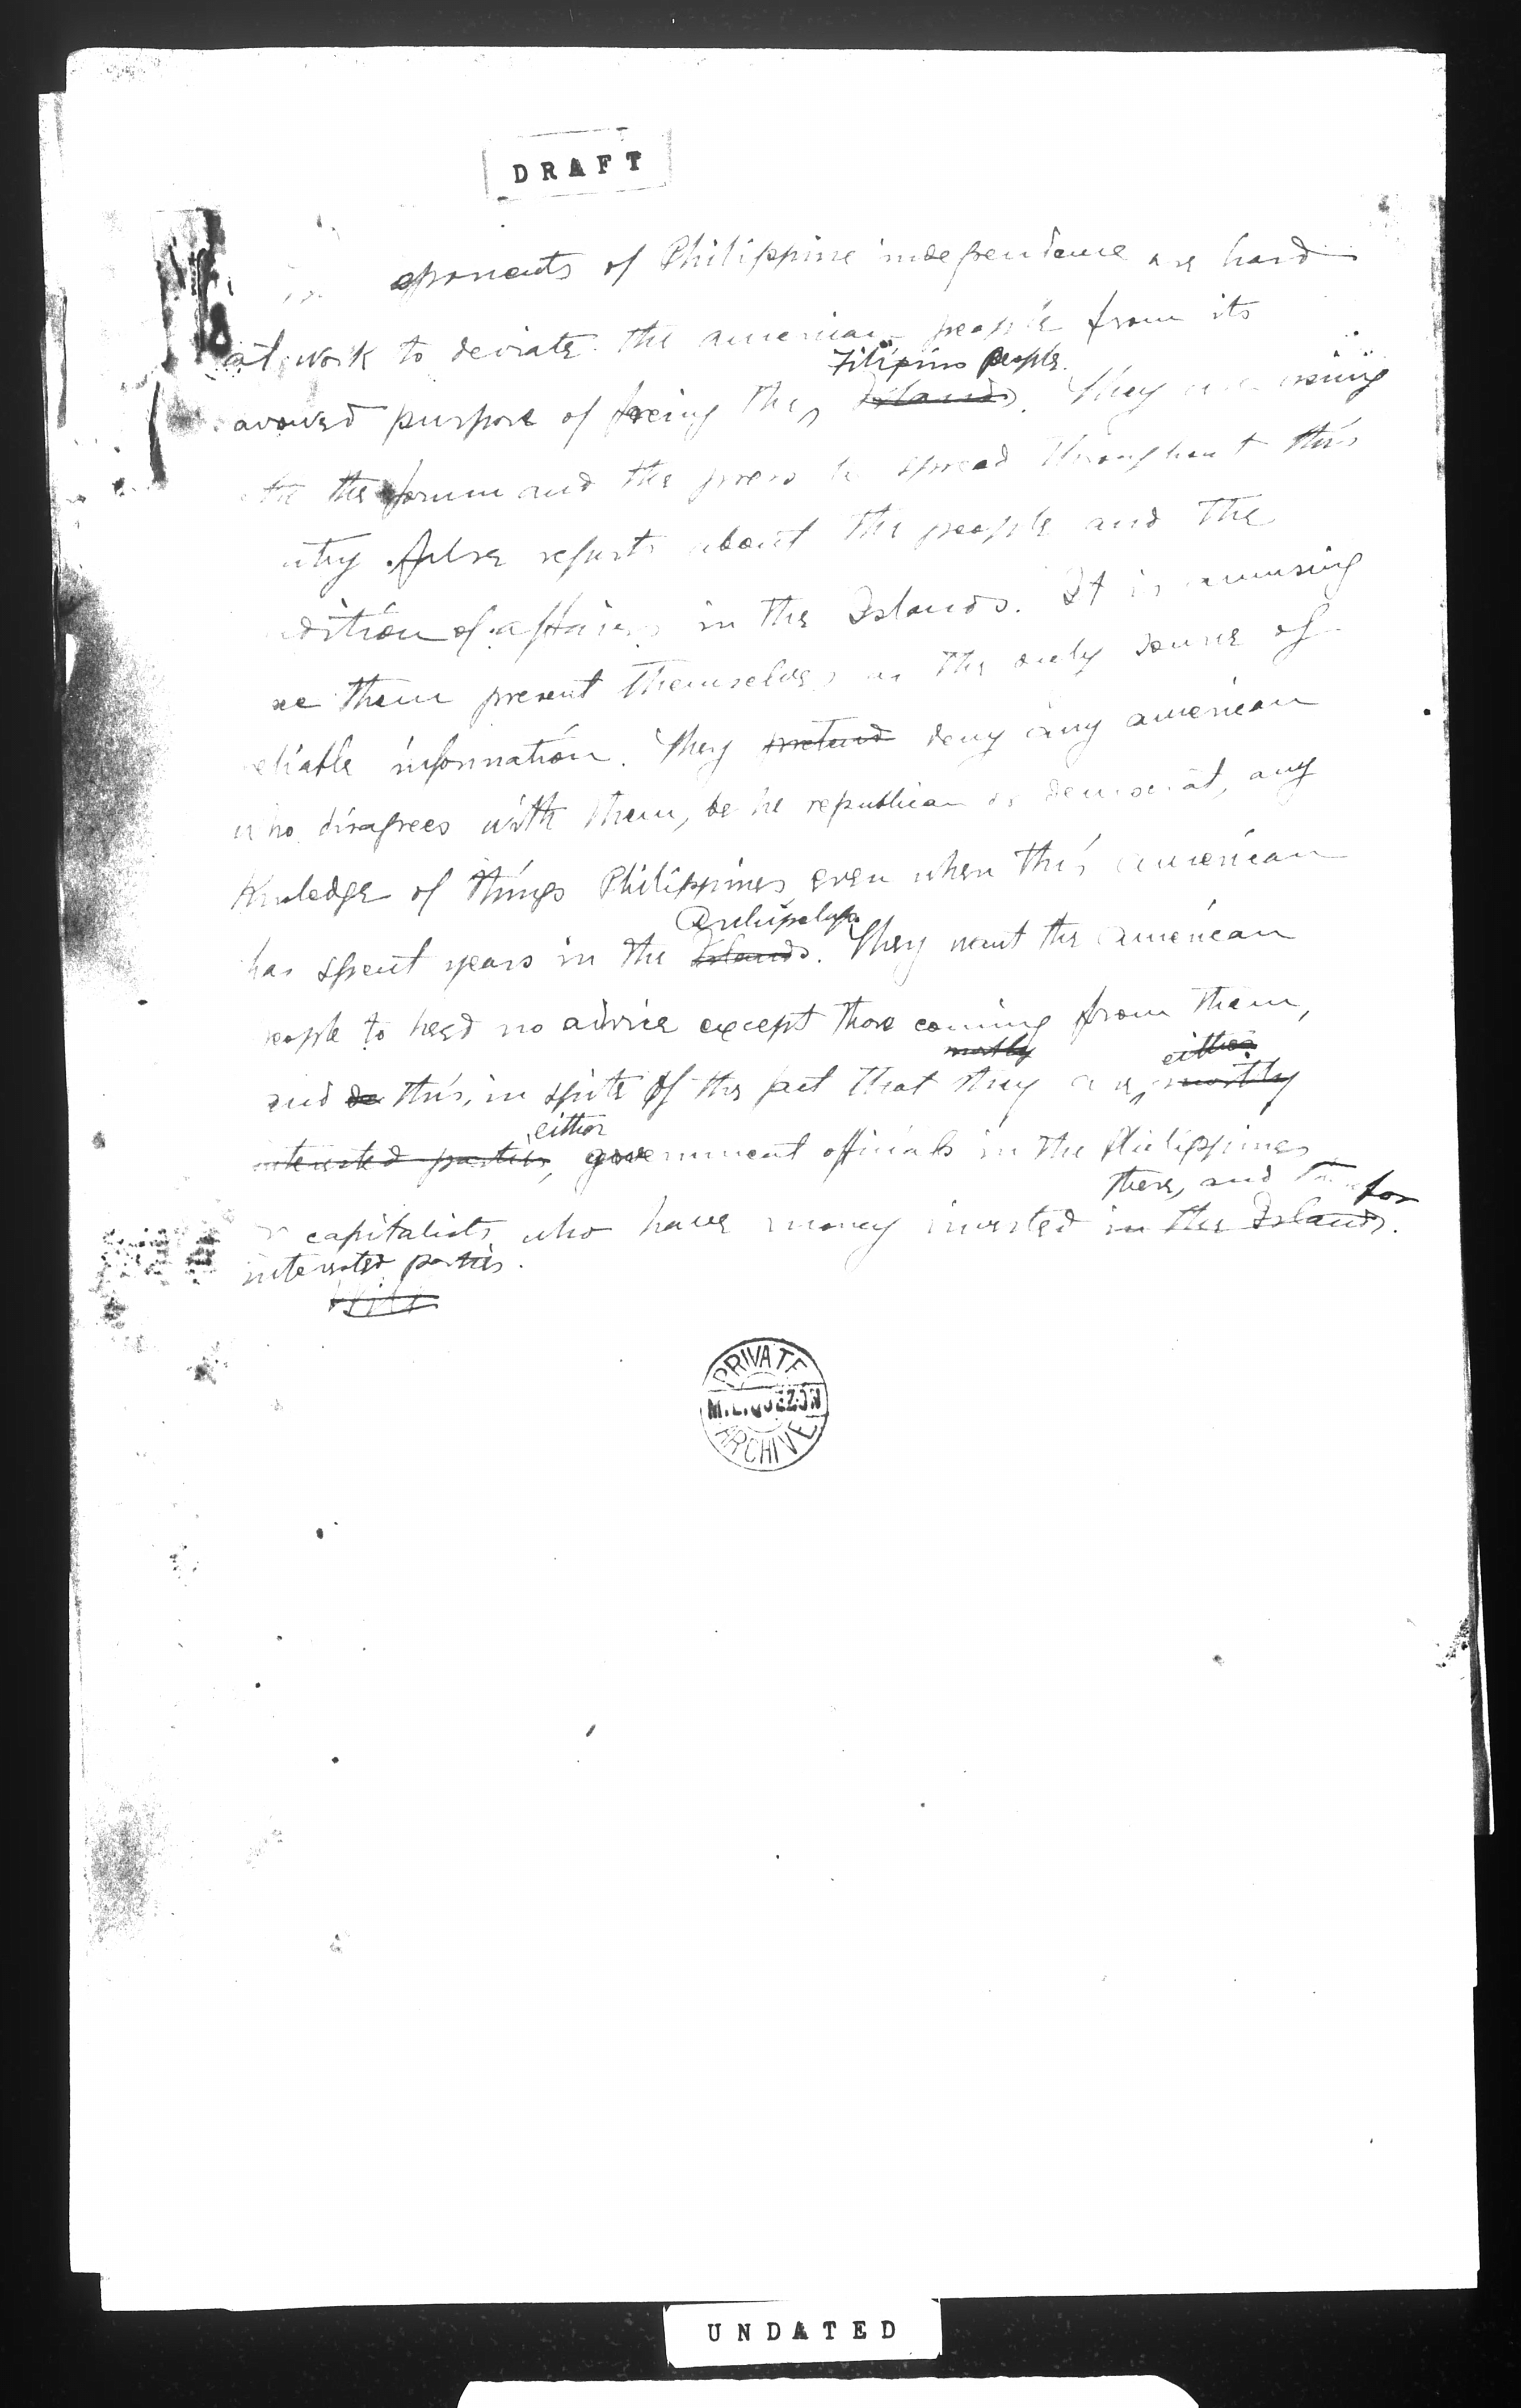 DRAFT
oponents of Philippine independence are hard
at work to deviate the american people from its
Filipino people.
avowed purpose of freeing the Islands. They are using
the forum and the press to spread throughout this
ntry false reports about the people and the
dition of affairs in the Islands. It is amusing
see them present themselves as the only source of
eliable information. They pretend deny any american
who disagrees with them, be he republican or democrat, any
Knowledge of things Philippines even when this american
Archipelago.
has spent years in the Islands. They want the american
people to heed no advice except those coming from them,
mostly either
and do this, in spite of the fact that they are, mostly
either
interested parties, government officials in the Philippines
there, and
or capitalists who have money invested in the Islands.
interested parties.
PRIVATE
M.L.QUEZON
ARCHIVE
UNDATED